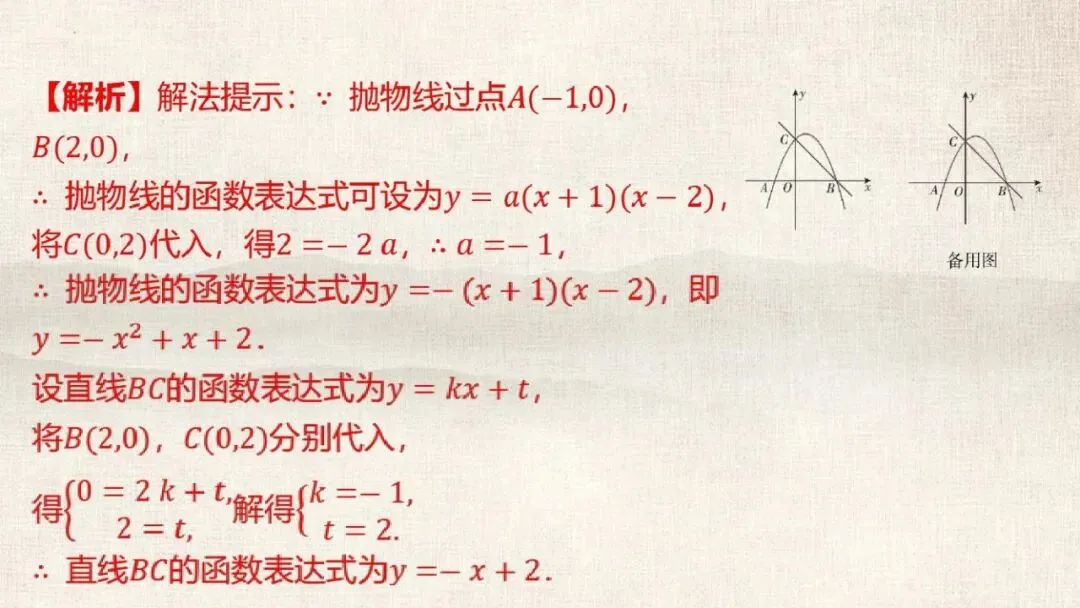 【解析】解法提示：∵ 抛物线过点A(−1,0)，
B(2,0)，
∴ 抛物线的函数表达式可设为y = a(x + 1)(x − 2)，
将C(0,2)代入，得2 =− 2 a，∴ a =− 1，
∴ 抛物线的函数表达式为y =− (x + 1)(x − 2)，即
y =− x² + x + 2．
设直线BC的函数表达式为y = kx + t，
将B(2,0)，C(0,2)分别代入，
得{0 = 2 k + t, 2 = t, 解得{k =− 1, t = 2.
∴ 直线BC的函数表达式为y =− x + 2．
y
C
A O B x
y
C
A O B x
备用图